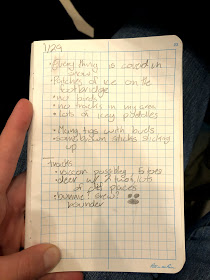 1/29
• Everything is covered in
snow
• Patches of ice on the
footbridge
• no birds
• no tracks in my area
• lots of icy puddles
• Many tigs with buds
• some brown sticks sticking
up
tracks
• raccoon possibly
• deer w/ a trail, lots
of places
• bunnie! dews!
bounder